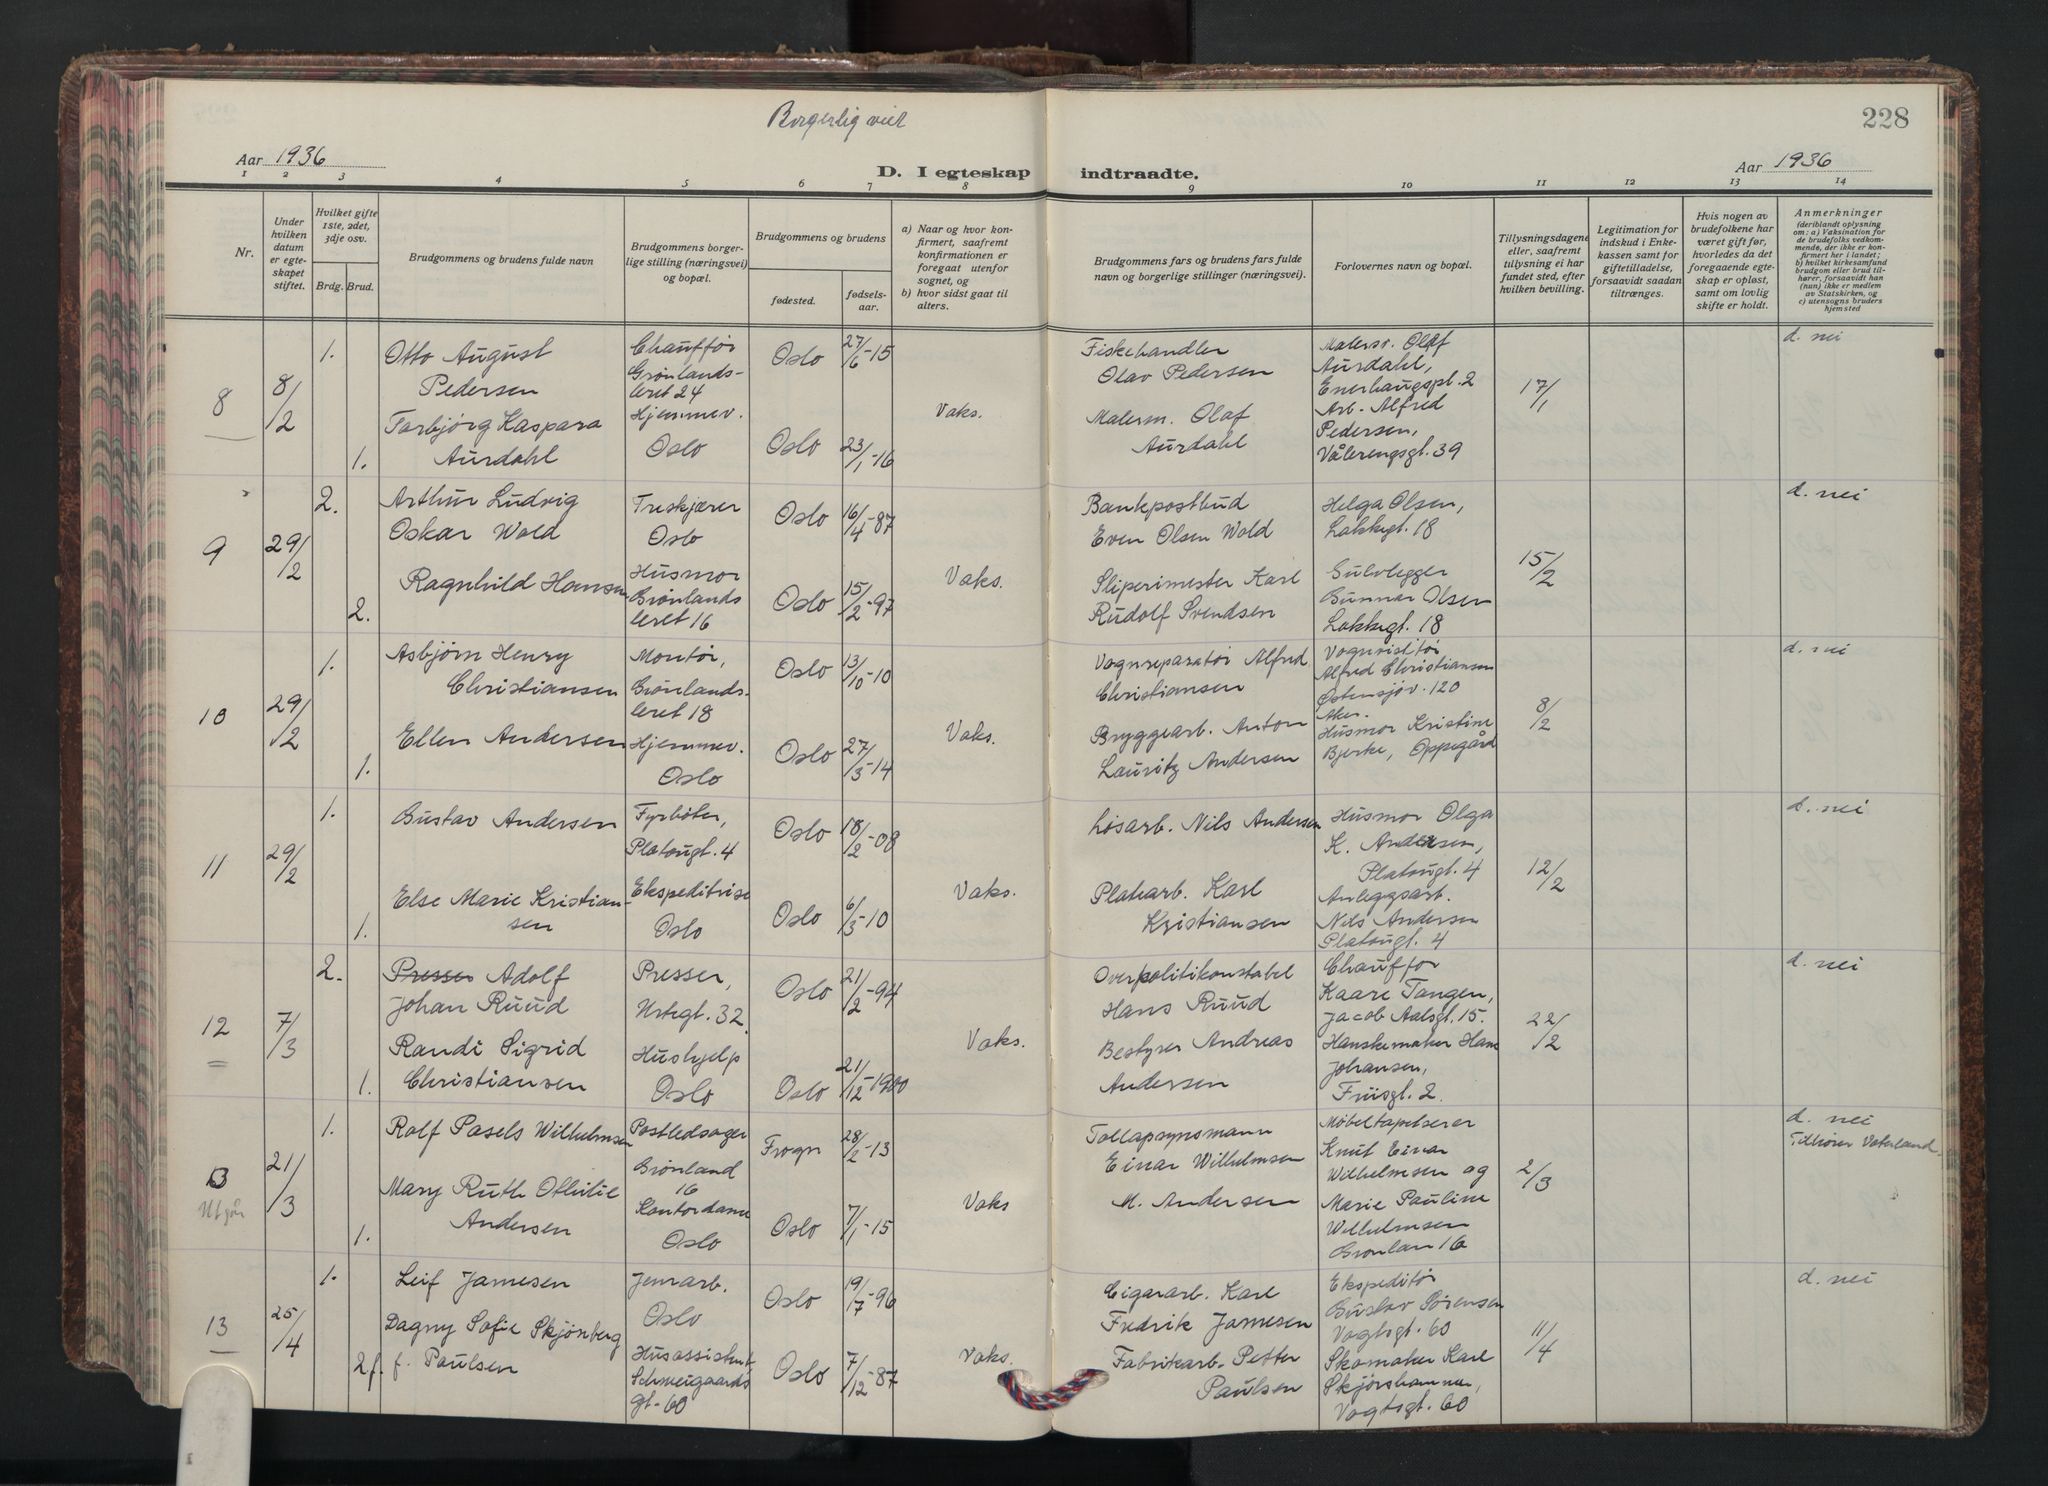 Borgerlig viet
228
Aar 1936
D. I egteskap indtraadte.
Aar 1936
1 2 3 4 5 6 7 8 9 10 11 12 13 14
Nr.
Under hvilken datum er egteskapet stiftet.
Hvilket gifte 1ste, 2det, 3dje osv.
Brdg. Brud.
Brudgommens og brudens fulde navn
Brudgommens borgerlige stilling (næringsvei) og bopæl.
Brudgommens og brudens
fødested.
fødselsaar.
a) Naar og hvor konfirmert, saafremt konfirmationen er foregaat utenfor sognet, og
b) hvor sidst gaat til alters.
Brudgommens fars og brudens fars fulde navn og borgerlige stillinger (næringsvei).
Forlovernes navn og bopæl.
Tillysningsdagene eller, saafremt tillysning ei har fundet sted, efter hvilken bevilling.
Legitimation for indskud i Enkekassen samt for giftetilladelse, forsaavidt saadan tiltrænges.
Hvis nogen av brudefolkene har været gift før, hvorledes da det foregaaende egteskap er opløst, samt om lovlig skifte er holdt.
Anmerkninger
(deriblandt oplysning om: a) Vaksination for de brudefolks vedkommende, der ikke er konfirmert her i landet; b) hvilket kirkesamfund brudgom eller brud tilhører, forsaavidt han (hun) ikke er medlem av Statskirken, og c) utensogns bruders hjemsted
8
8/2
1.
Otto August
Pedersen
Chauffør
Grønlands-
leret 24
Oslo
27/6-15
Fiskehandler
Olav Pedersen
Malerm. Olaf
Aurdahl,
Enerhaugspl. 2
17/1
d. nei
1.
Torbjørg Kaspara
Aurdahl
Hjemmev.
Oslo
Oslo
23/1-16
Vaks.
Malerm. Olaf
Aurdahl
Arb. Alfred
Pedersen,
Vålerengsgt. 39
9
29/2
2.
Arthur Ludvig
Oskar Wold
Treskjærer
Oslo
Oslo
16/4-87
Bankpostbud
Even Olsen Wold
Helga Olsen,
Lakkegt. 18
15/2
d. nei
2.
Ragnhild Hansen
Husmor
Grønlands
leret 16
Oslo
15/2-97
Vaks.
Sliperimester Karl
Rudolf Svendsen
Gulvlegger
Gunnar Olsen
Lakkegt. 18
10
29/2
1.
Asbjørn Henry
Christiansen
Montør,
Grønlands-
leret 18
Oslo
13/10-10
Vognreparatør Alfred
Christiansen
Vognvisitør
Alfred Christiansen
Østensjøv. 120
Aker.
8/2
d. nei
1.
Ellen Andersen
Hjemmev.
Oslo
Oslo
27/3-14
Vaks.
Bryggearb. Anton
Lauritz Andersen
Husmor Kristine
Bjerke, Oppegård
11
29/2
1.
Gustav Andersen
Fyrbøter,
Platougt. 4
Oslo
18/2-08
Løsarb. Nils Andersen
Husmor Olga
K. Andersen,
Platougt. 4
12/2
d. nei
1.
Else Marie Kristian-
sen
Ekspeditrise
Oslo
Oslo
6/3-10
Vaks.
Platearb. Karl
Kristiansen
Anleggsarb.
Nils Andersen
Platougt. 4
12
7/3
2.
Presser Adolf
Johan Ruud
Presser,
Urtegt. 32.
Oslo
21/2-94
Overpolitikonstabel
Hans Ruud
Chauffør
Kaare Tangen,
Jacob Aalsgt. 15.
22/2
d. nei
1.
Randi Sigrid
Christiansen
Hushjelp
Oslo
Oslo
21/12-1900
Vaks.
Bestyrer Andreas
Andersen
Hanskemaker Hans
Johansen,
Friisgt. 2.
Utgår
21/3
1.
Rolf Pasels Wilhelmsen
Postledsager
Grønland
16
Frogn
28/2-13
Tollopsynsmann
Einar Wilhelmsen
Møbeltapetserer
Knut Einar
Wilhelmsen og
2/3
d. nei
Tilhører Vaterland.
1.
Mary Ruth Othilie
Andersen
Kontordame
Oslo
Oslo
7/1-15
Vaks
M. Andersen
Marie Pauline
Wilhelmsen
Grønlan 16
13
25/4
1.
Leif Jamesen
Jernarb.
Oslo
Oslo
19/17-96
Cigararb. Karl
Fredrik Jamesen
Ekspeditør
Gustav Sørensen
Vogtsgt. 60
11/4
d. nei
2 f.
Dagny Sofie Skjønberg
f. Paulsen
Husassistent
Schweigaards
gt. 60
Oslo
7/12-87
Vaks.
Fabrikarb. Petter
Paulsen
Skomaker Karl
Skjørshammer,
Vogtsgt. 60